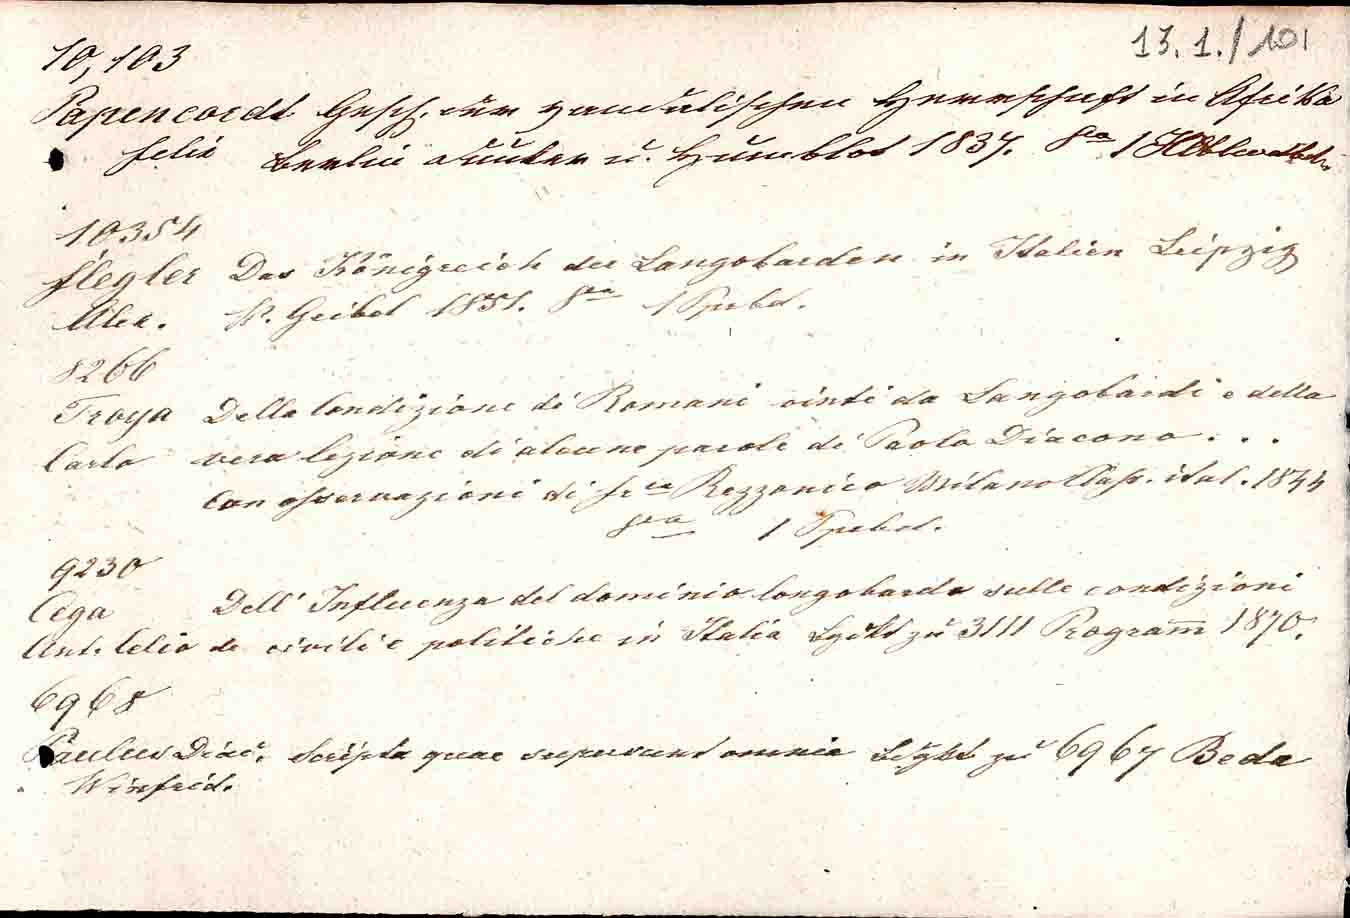 13. 1. / 101
10,103
Papencordt Gesch. der vandalischen Herrschaft in Afrika
Felix Berlin Duncker u. Humblot 1837. 8va 1
10354
Flegler Das Königreich der Langobarden in Italien Leipzig
Alex. Geibel 1851. 8va 1 Ppbd.
8266
Troya Della Condizione di Romani vinti da Langobardi e della
Carlo vera lezione di alcune parole di Paolo Diacono . . .
Con osservazioni di Rezzonico Milano tip. ital. 1844
8va 1 Ppbd.
9230
Cega Dell' Influenza del dominio longobardo sulle condizioni
Ant. Lelio de civili e politiche in Italia zu 3111 Program̅ 1870.
6968
Paulus Diac. Scripta quae supersunt omnia zu 6967 Beda
Winfrid.